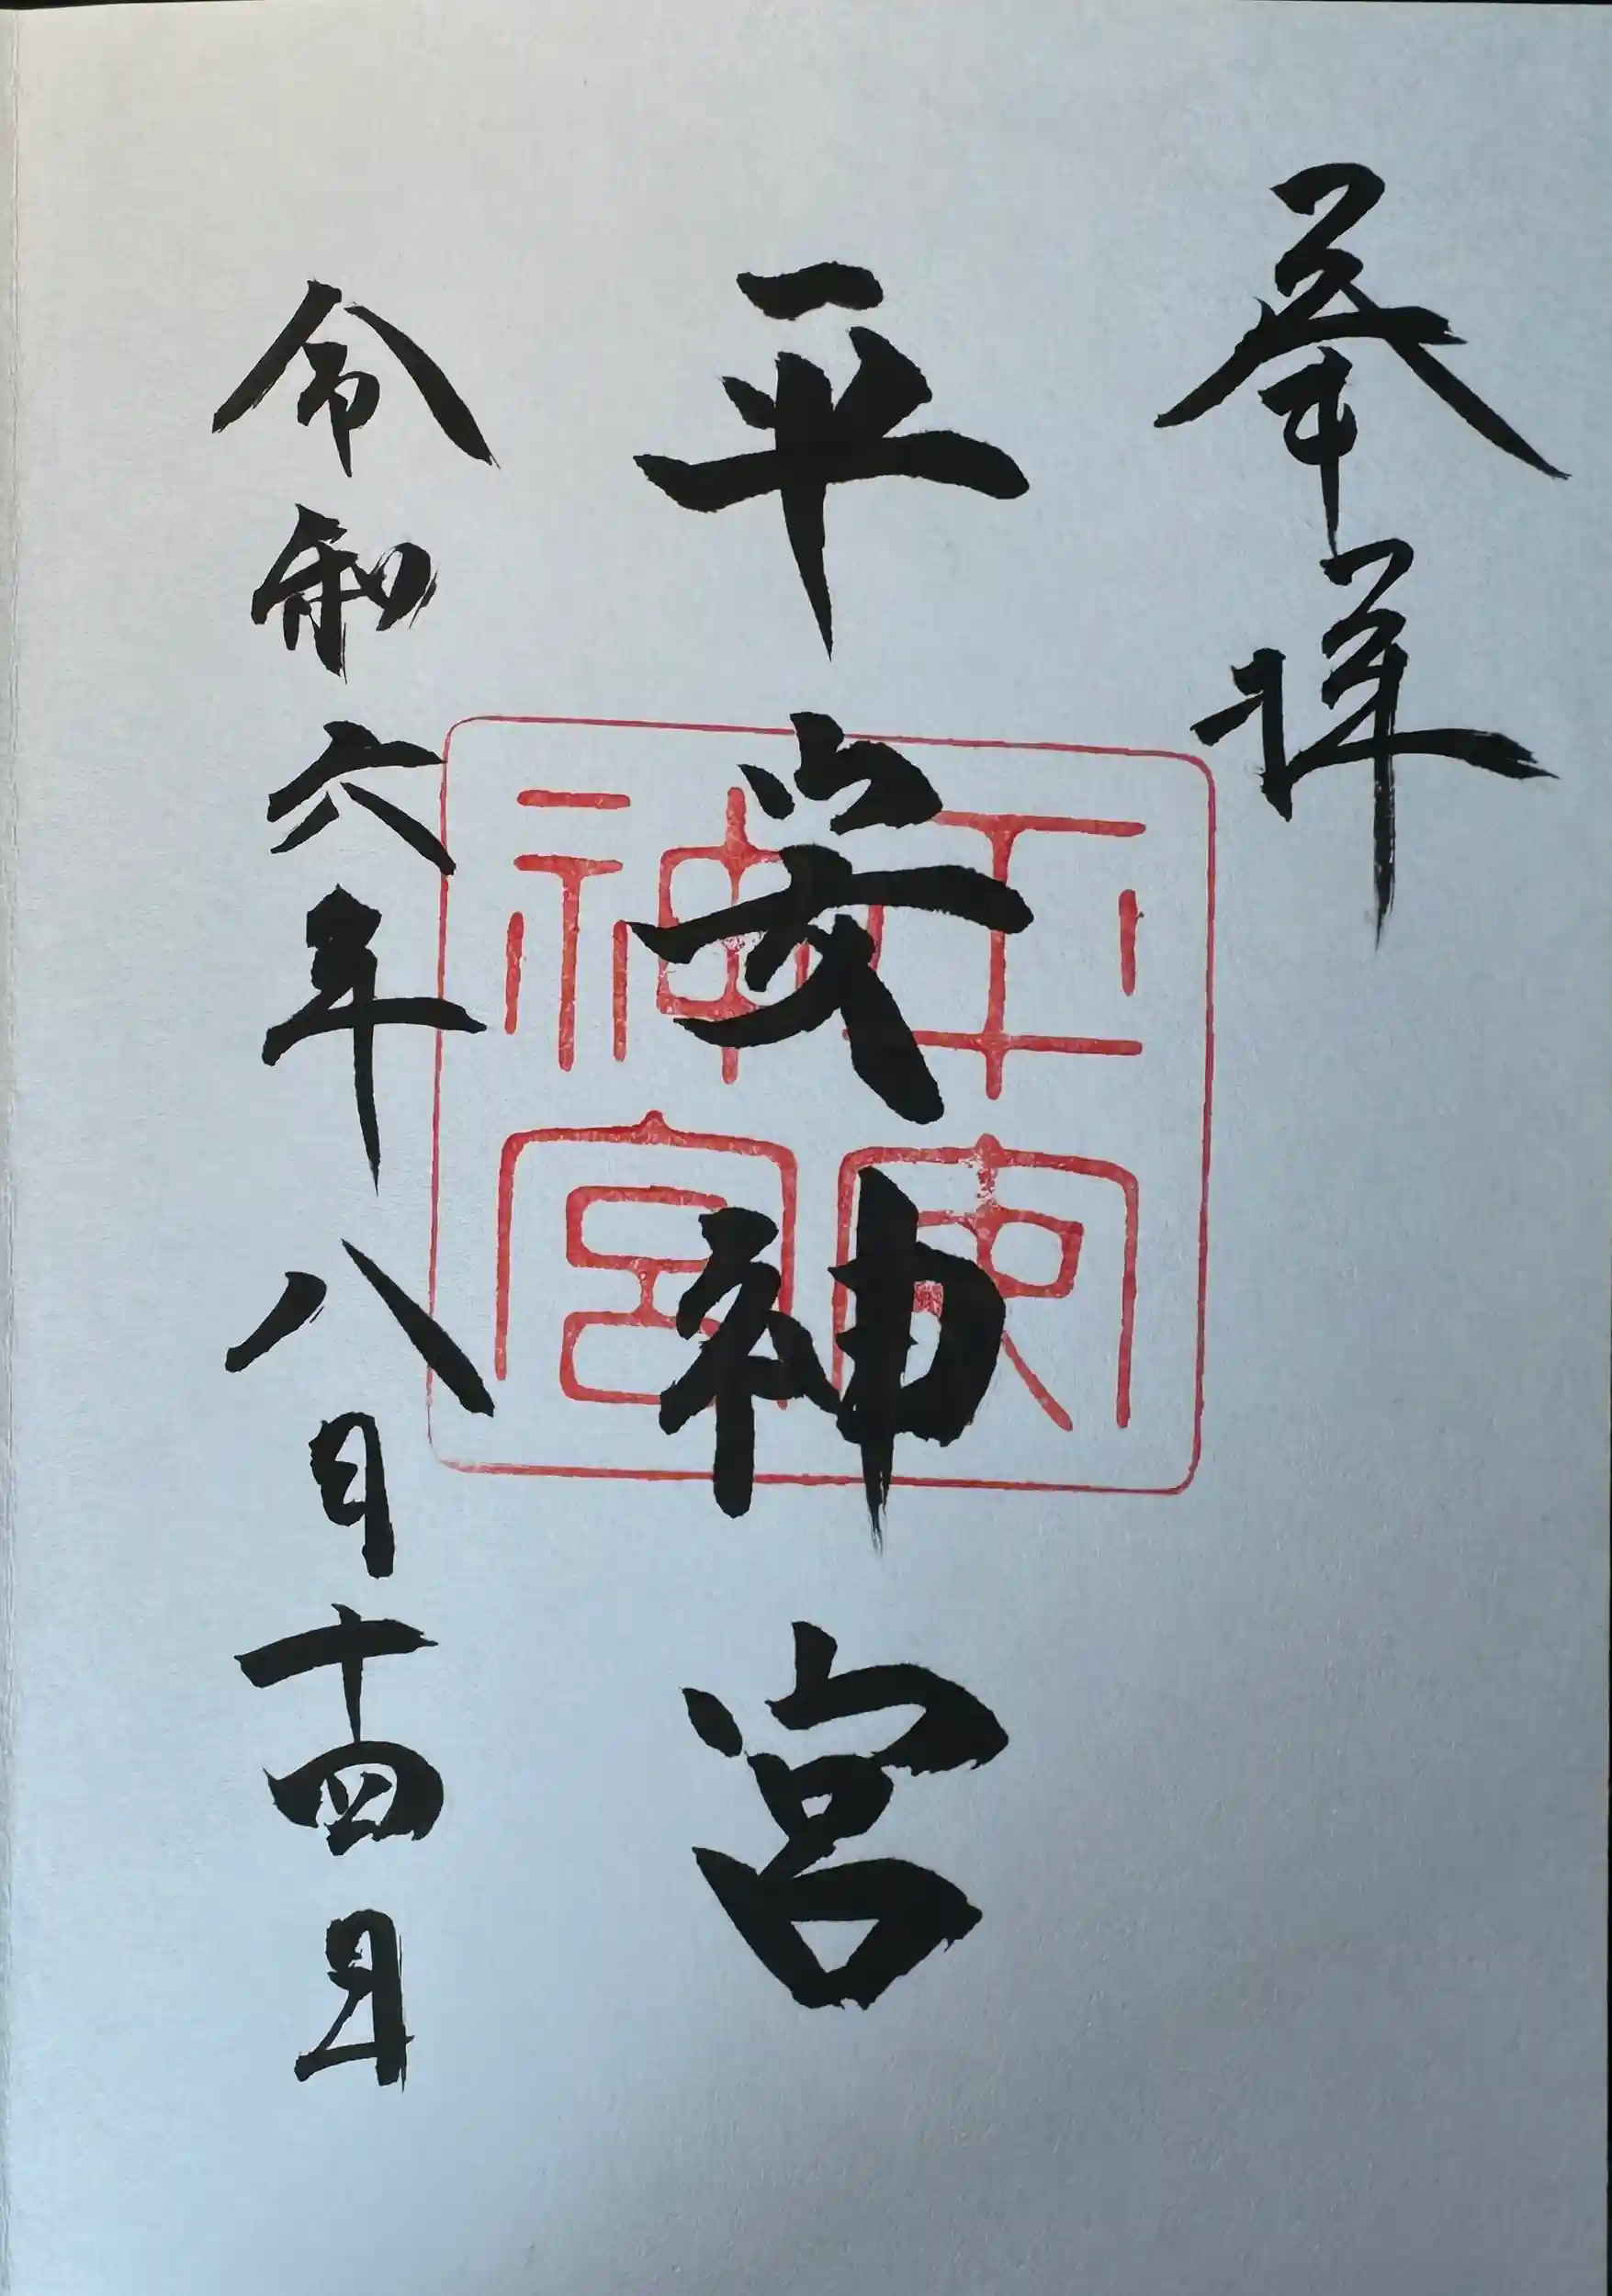 奉拝
平安神宮
令和六年八月十四日
平安神宮